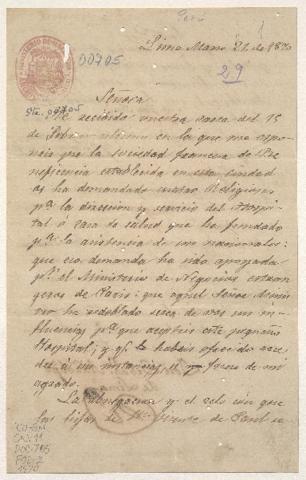 Perú
1
Lima Marzo 21 de 1870
00705
29
Señora
Ste. 00705
He recibido vuestra carta del 15
de Febrero último en la que me expo-
neis que la sociedad francesa de Be-
neficencia establecida en esta ciudad
os ha demandado cuatro Religiosas
pª la direccion y servicio del Hospi-
tal ó casa de salud que ha fundado
pª la asistencia de sus nacionales:
que esa demanda ha sido apoyada
pr. el Ministerio de Negocios estran-
geros de Paris: que aquel Señor Minis-
tro ha redoblado cerca de vos su in-
fluencia pª que acepteis este pequeño
Hospital; y qe. le habeis ofrecido acce-
der á su instancia, si fuese de mi
agrado.
La abnegacion y el celo con que
las hijas de Sn. Vicente de Paul se